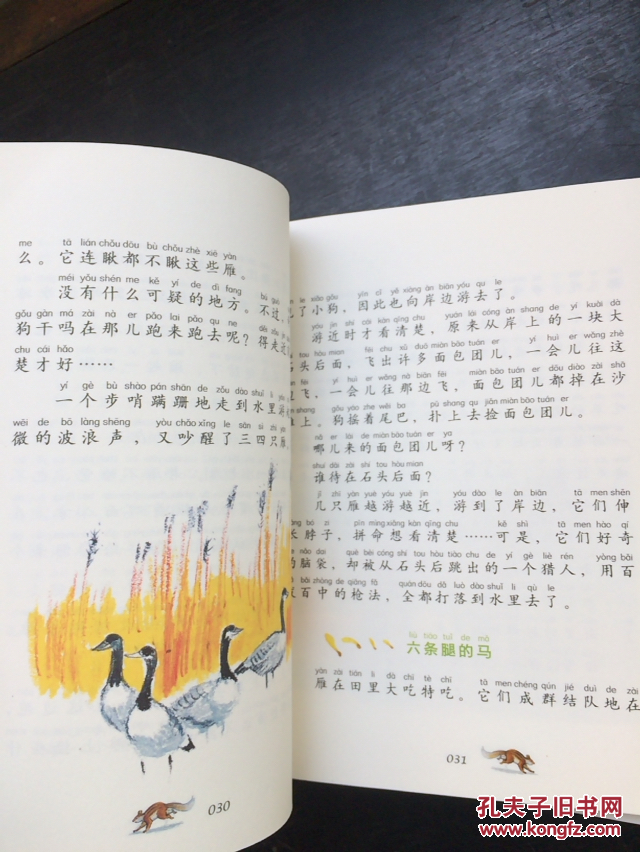 me tā lián chǒu dōu bù chǒu zhè xiē yàn
么。它连瞅都不瞅这些雁。
méi yǒu shén me kě yí de dì fang bú
没有什么可疑的地方。不过，
gǒu gàn má zài nà er pǎo lái pǎo qu ne děi zǒu
狗干吗在那儿跑来跑去呢？得走近
chu cái hǎo
楚才好……
yí gè bù shào pán shān de zǒu dào shuǐ lǐ
一个步哨蹒跚地走到水里
wēi de bō làng shēng yòu chǎo xǐng le sān sì zhī
微的波浪声，又吵醒了三四只
030
le xiǎo gǒu yīn cǐ yě xiàng àn biān yóu qu le
了小狗，因此也向岸边游去了。
yóu jìn shí cái kàn qīng chu yuán lái cóng àn shang de yí kuài dà
游近时才看清楚，原来从岸上的一块大
tou hòu miàn fēi chu xǔ duō miàn bāo tuán er yì huì er wǎng zhè
石头后面，飞出许多面包团儿，一会儿往这
yì huì er wǎng nà biān fēi miàn bāo tuán er dōu diào zài shā
飞，一会儿往那边飞，面包团儿都掉在沙
shang gǒu yáo zhe wěi ba pū shang qu jiǎn miàn bāo tuán er
上。狗摇着尾巴，扑上去捡面包团儿。
nǎ er lái de miàn bāo tuán er ya
哪儿来的面包团儿呀？
shuí dāi zài shí tou hòu mian
谁待在石头后面？
jǐ zhī yàn yuè yóu yuè jìn yóu dào le àn biān tā men shēn
几只雁越游越近，游到了岸边，它们伸
bó zi pīn mìng xiǎng kàn qīng chu kě shì tā men hào qí
长脖子，拼命想看清楚……可是，它们好奇
nǎo dai què bèi cóng shí tou hòu tiào chu de yí gè liè rén yòng bǎi
的脑袋，却被从石头后跳出的一个猎人，用百
bǎi zhòng de qiāng fǎ quán dōu dǎ luò dào shuǐ lǐ qù le
发百中的枪法，全都打落到水里去了。
liù tiáo tuǐ de mǎ
六条腿的马
yàn zài tián lǐ dà chī tè chī tā men chéng qún jié duì de zài
雁在田里大吃特吃。它们成群结队地在
031
孔夫子旧书网
www.kongfz.com